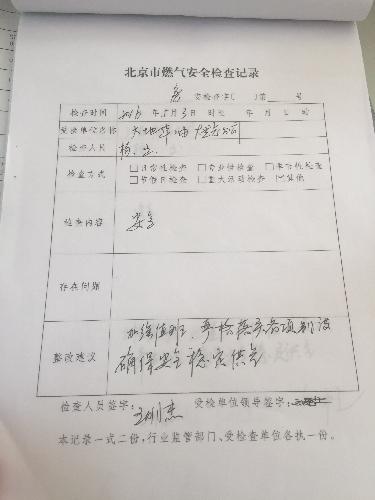 北京市燃气安全检查记录
安检查字( )第 号
检查时间 年5月3日 时 年 月 日
受检单位名称
检查人员 杨
检查方式 □日常性检查 □专业性检查 □季节性检查
□节假日检查 □重大活动检查 ☑其他
检查内容 安全
存在问题
加强值班、严格落实各项制度
整改建议
确保安全稳定供气
检查人员签字: 受检单位领导签字:
本记录一式二份,行业监管部门、受检查单位各执一份。